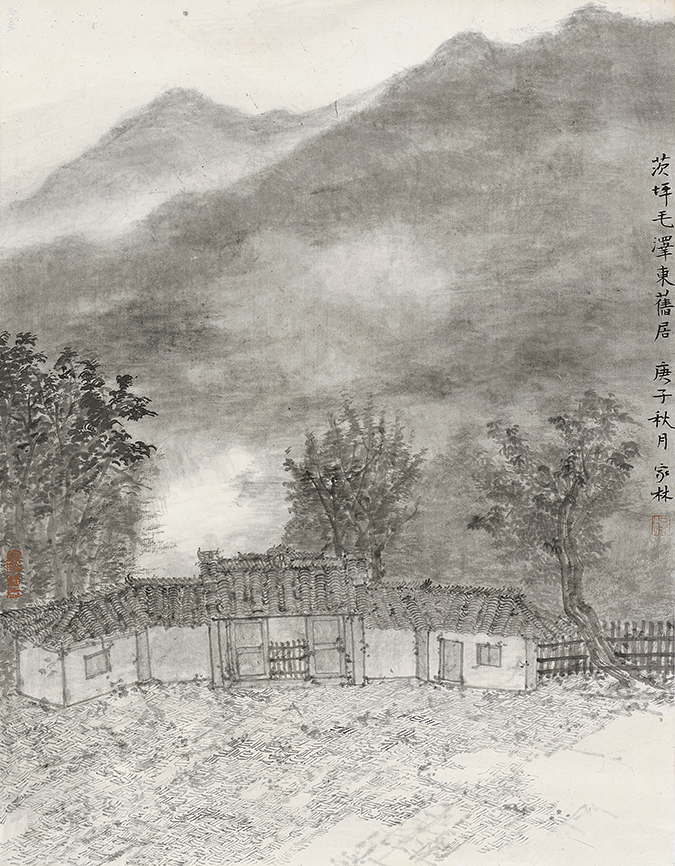 茨坪毛澤東舊居 庚子秋月 家林